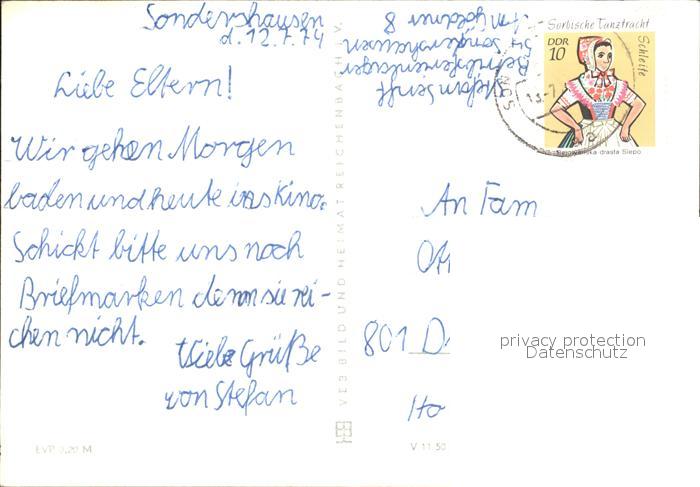 Sondershausen
d. 12.7.74
Liebe Eltern!
Wir gehen Morgen
baden und heute ins Kino.
Schickt bitte uns noch
Briefmarken denn sie rei-
chen nicht.
Viele Grüße
von Stefan
EVP 0,20 M
VEB BILD UND HEIMAT REICHENBACH I. V.
V 11 50
Stefan Senft
Betriebsferienlager
54 Sondershausen
8
Sorbische Tanztracht
Schleife
DDR
10
drasta Slepo
An Fam
Ott
801 D
Ho
privacy protection
Datenschutz